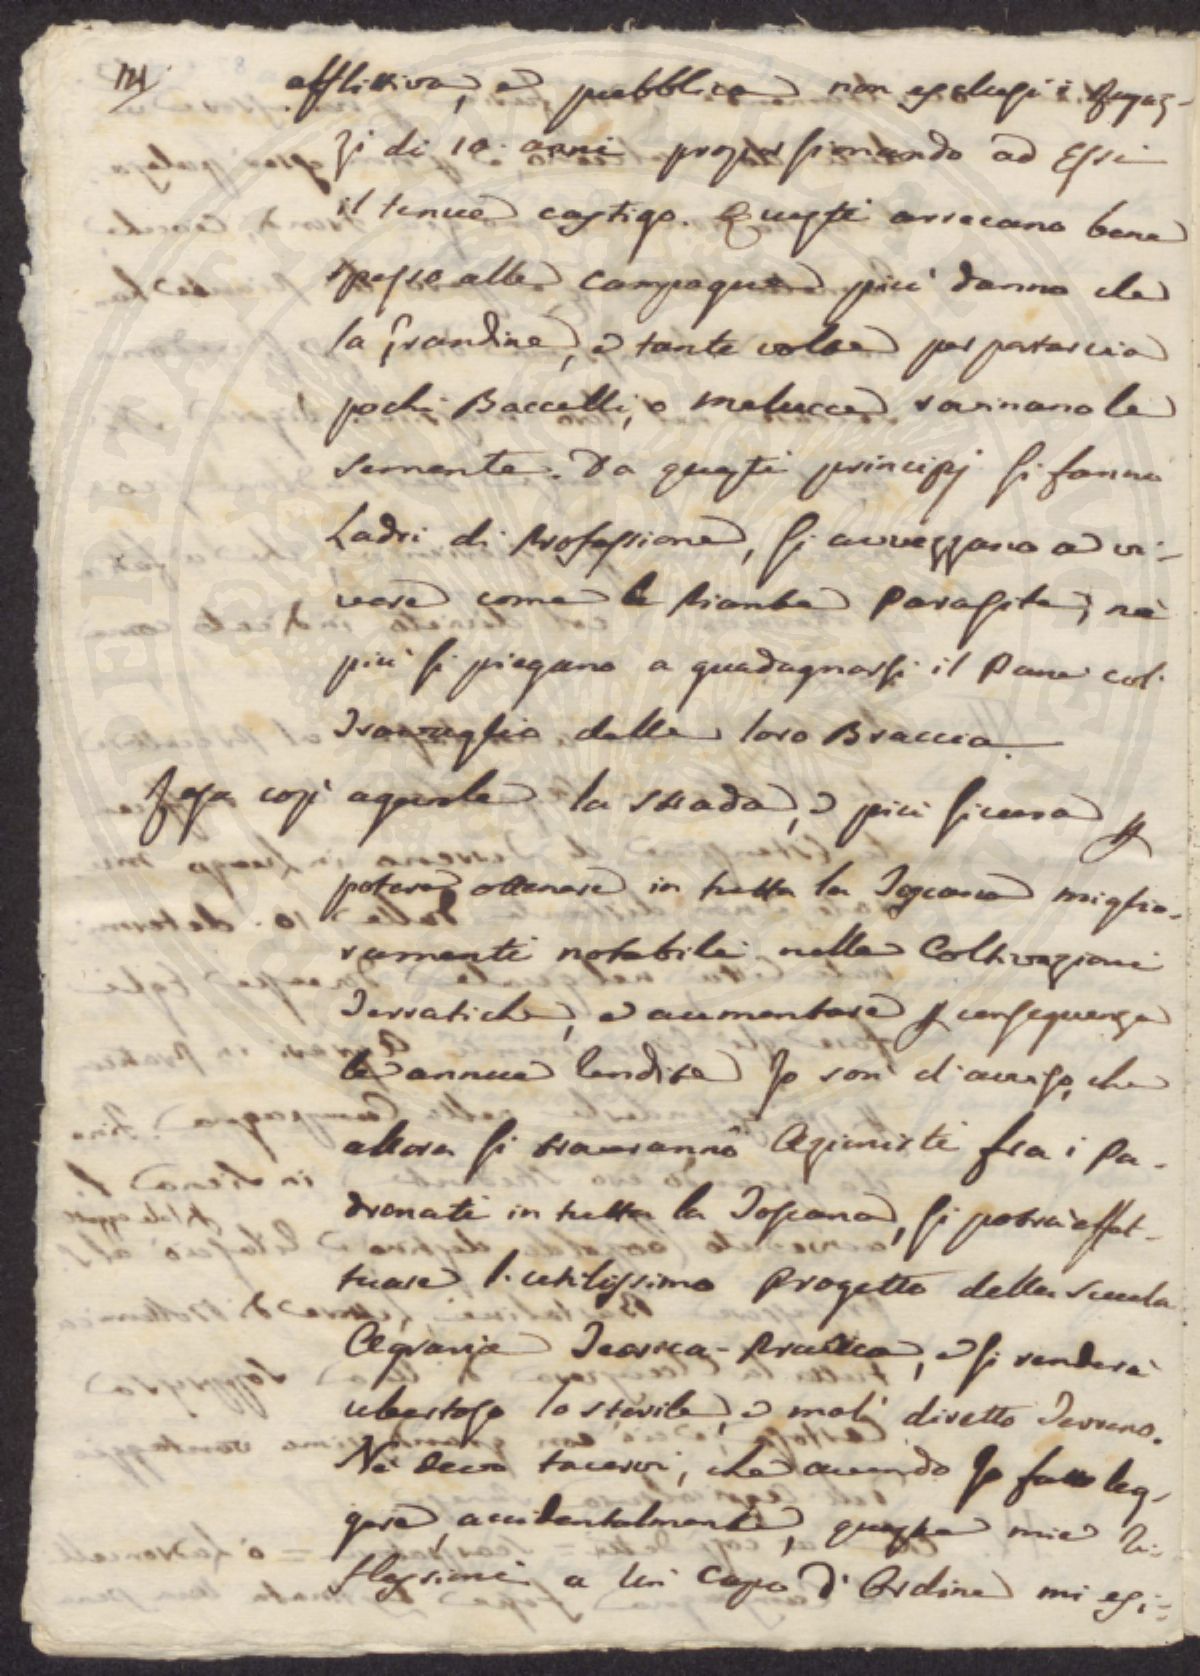 afflittiva, e pubblica non esclusi i Ragaz-
zi di 10. anni proporsionando ad Essi
il tenue castigo. Questi arrecano bene
spesso alle campagne più danno che
la Grandine, e tante volte per portar via
pochi Baccelli, o melucce rovinano le
semente. Da questi principj si fanno
Ladri di Professione, si avvezzano a vi-
vere come le Piante Parasite, nè
più si piegano a guadagnarsi il Pane col
Travaglio delle loro Braccia.
Resa così agevole la strada, e più sicura p
potere ottenere in tutta la Toscana miglio-
ramenti notabili nelle Coltivazioni
Terratiche, e aumentare p conseguenza
le annue Rendite Io son d'avviso, che
allora si troveranno Azionisti fra i Pa-
dronati in tutta la Toscana, si potrà effet-
tuare l'utilissimo Progetto della Scuola
Agraria Teorica-Pratica, e si renderà
ubertoso lo sterile, e mal diretto Terreno.
Nè Devo tacervi, che avendo Io fatto leg-
gere accidentalmente, queste mie Ri-
flessioni a un Capo d'Ordine mi esi-